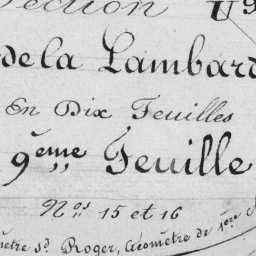 Section U
de la Lambard
En Dix Feuilles
9ème Feuille
Nos 15 et 16
mètre Sr. Roger, Géomètre de 1ère